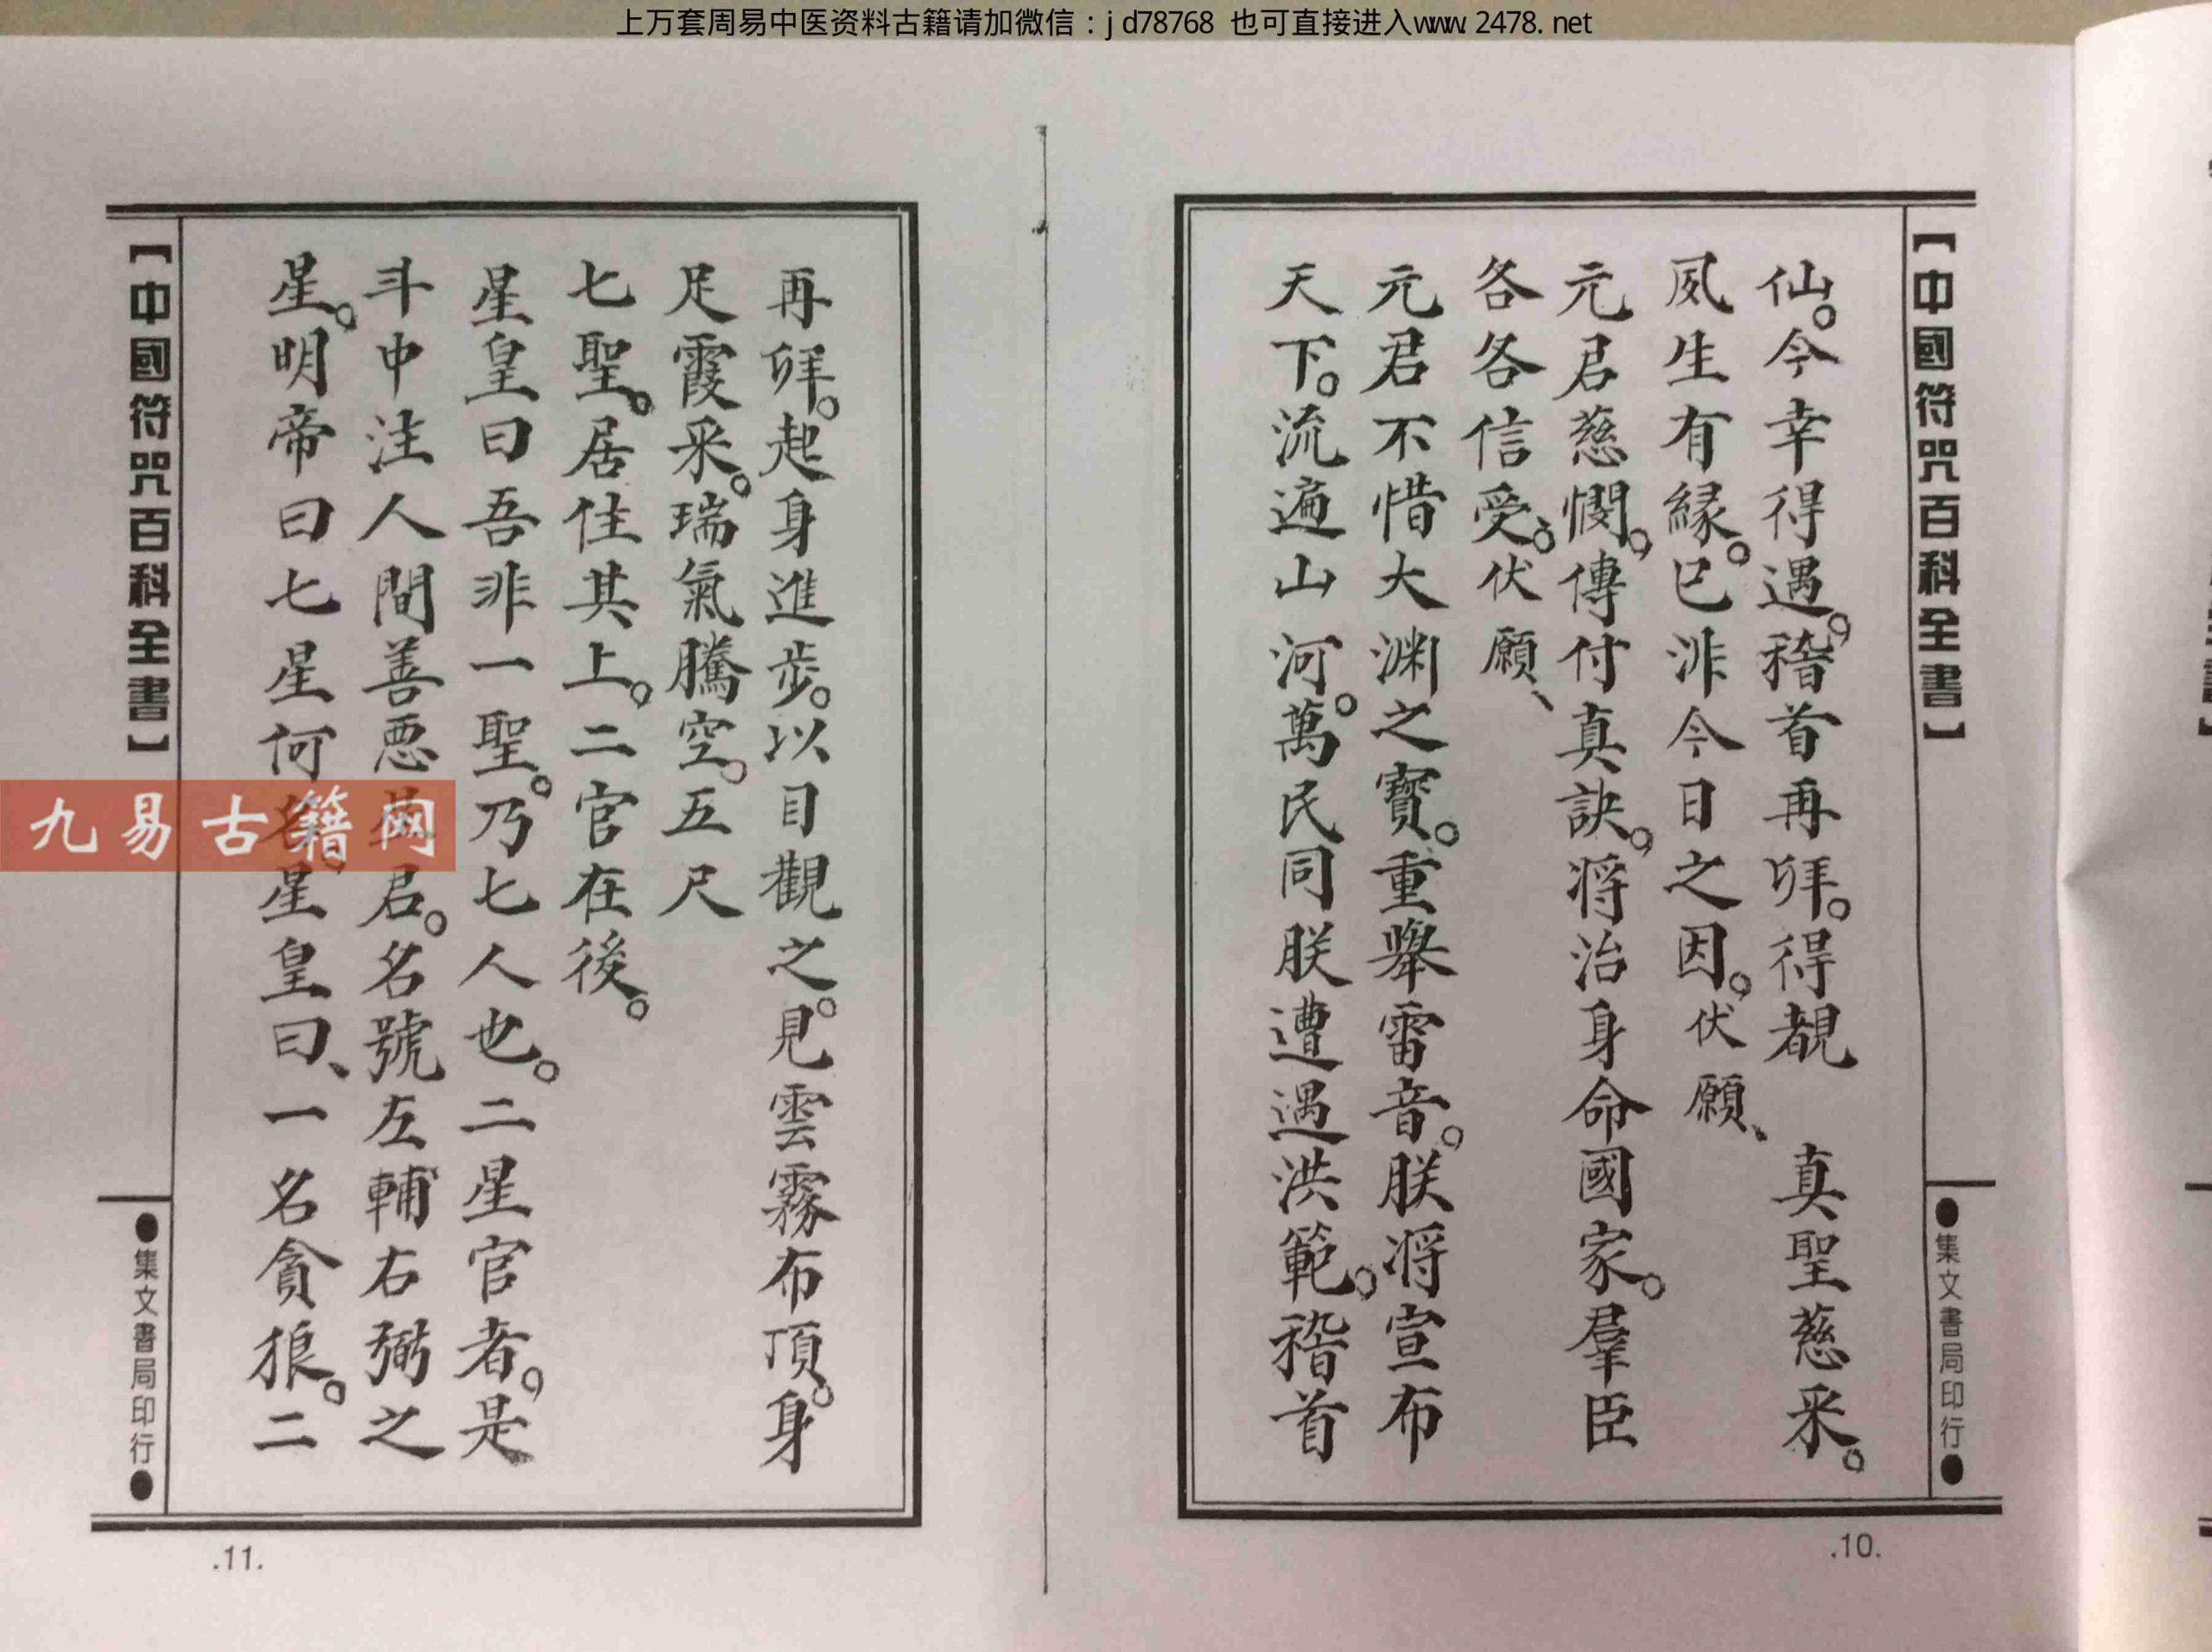 上万套周易中医资料古籍请加微信：jd78768 也可直接进入www.2478.net
【中國符咒百科全書】
●集文書局印行●
仙。今幸得遇。稽首再拜。得覩 真聖慈采。
夙生有緣。已非今日之因。伏願、
元君慈憫。傳付真訣。將治身命國家。羣臣
各各信受。伏願、
元君不惜大渊之寳。重舉雷音。朕將宣布
天下。流遍山河。萬民同朕遭遇洪範。稽首
.10.
再拜。起身進步。以目觀之。見雲霧布頂。身
足霞采。瑞氣騰空。五尺
七聖。居住其上。二官在後。
星皇曰吾非一聖。乃七人也。二星官者。是
斗中注人間善惡 君。名號左輔右弼之
星。明帝曰七星何名。星皇曰、一名貪狼。二
【中國符咒百科全書】
●集文書局印行●
.11.
九易古籍网